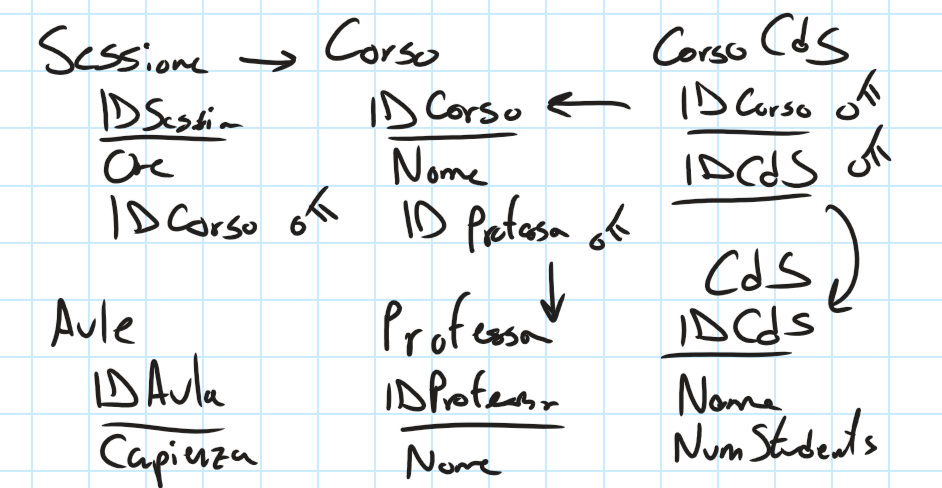 Sessione → Corso
IDSessin
Ore
IDCorso
IDCorso
Nome
ID Professor
Corso CdS
IDCorso
IDCdS
Aule
IDAula
Capienza
Professor
IDProfessor
Nome
CdS
IDCdS
Nome
NumStudents